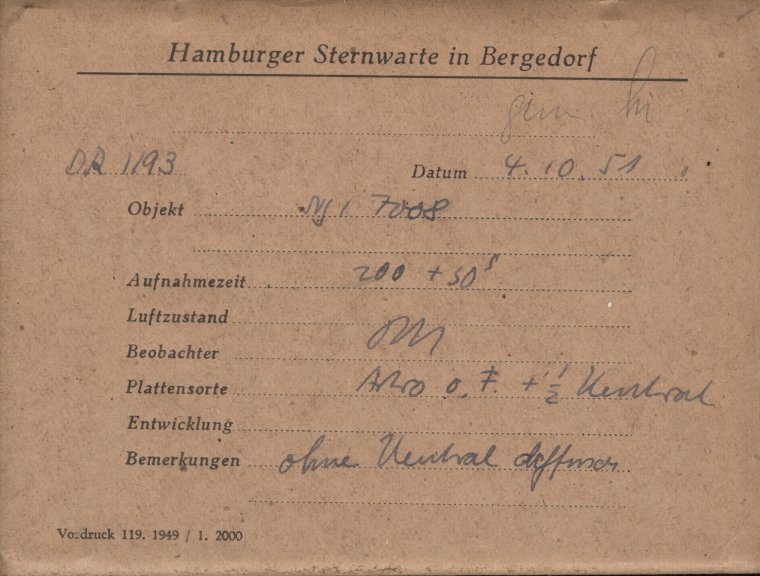 Hamburger Sternwarte in Bergedorf
DR 1193 Datum 4.10.51
Objekt 7008
Aufnahmezeit 200 + 30 s
Luftzustand
Beobachter
Plattensorte Astro o. F. + ½ Neutral
Entwicklung
Bemerkungen ohne Neutral diffuser
Vordruck 119. 1949 / 1. 2000